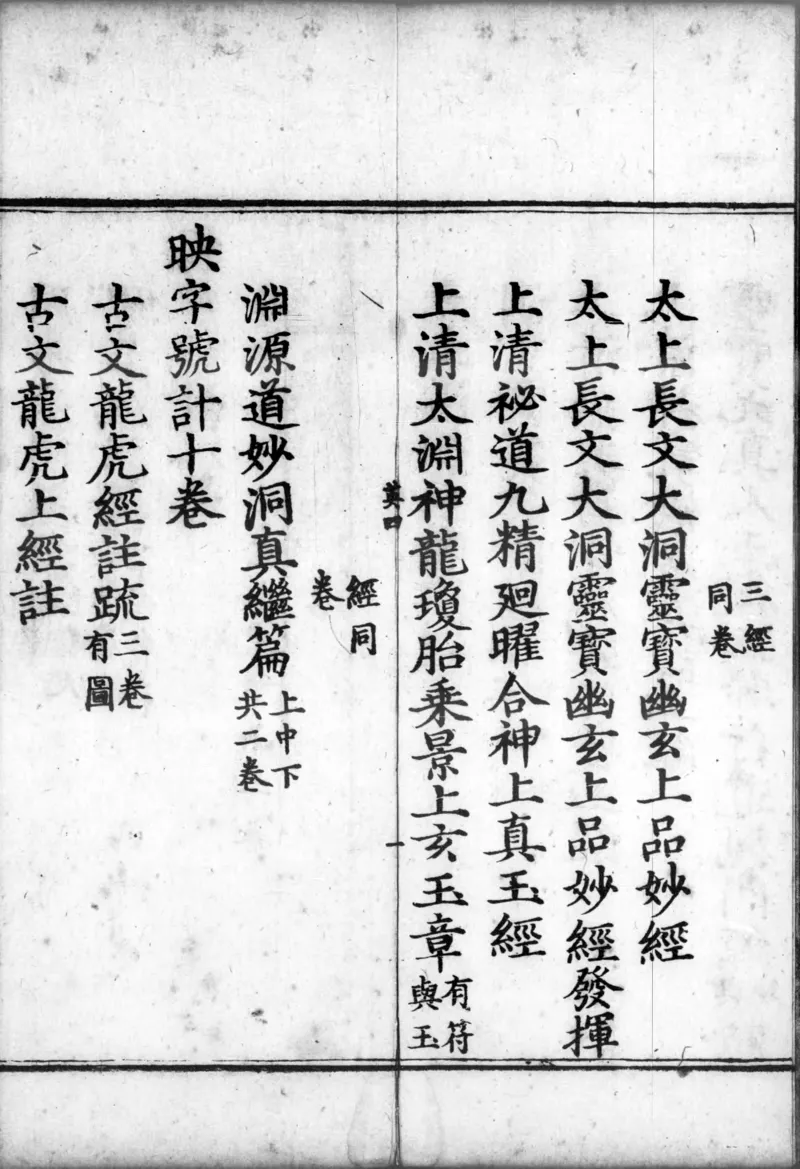 三經
同卷
太上長文大洞靈寶幽玄上品妙經
太上長文大洞靈寶幽玄上品妙經發揮
上清祕道九精廻曜合神上真玉經
上清太淵神龍瓊胎乘景上玄玉章有符
與玉
經同
卷
淵源道妙洞真繼篇上中下
共二卷
映字號計十卷
古文龍虎經註疏三卷
有圖
古文龍虎上經註